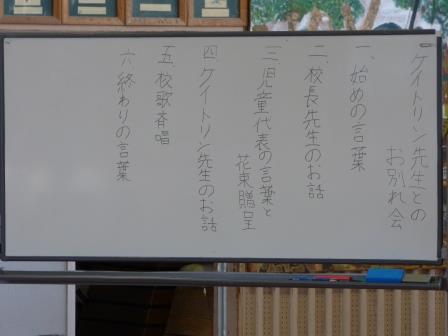 ケイトリン先生との
お別れ会
一、始めの言葉
二、校長先生のお話
三、児童代表の言葉と
花束贈呈
四、ケイトリン先生のお話
五、校歌斉唱
六、終わりの言葉